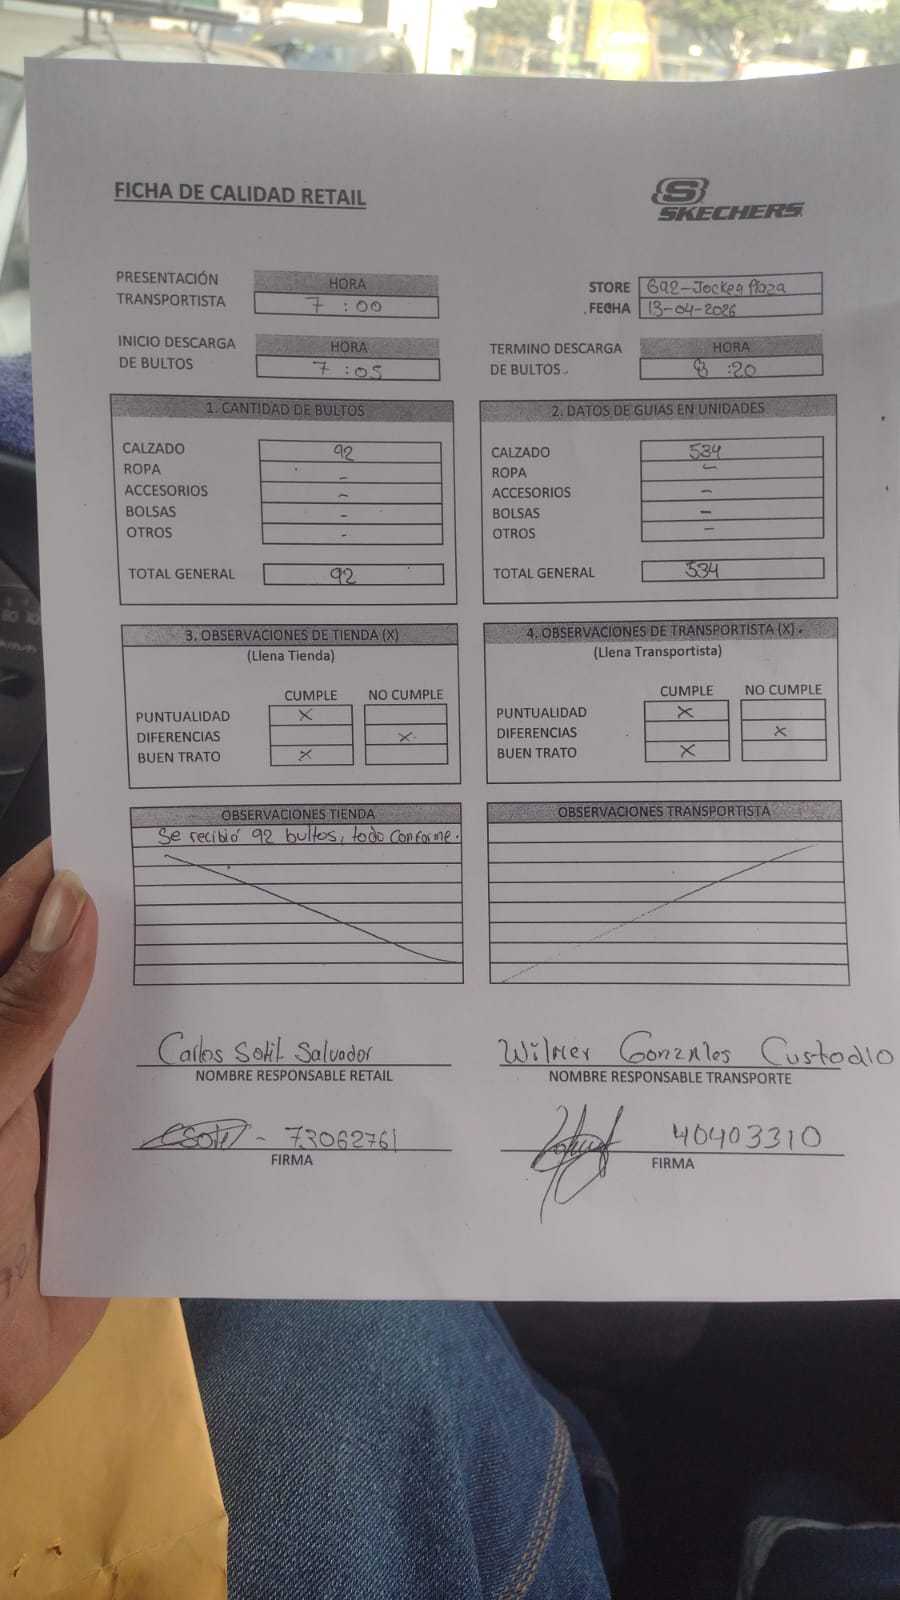 FICHA DE CALIDAD RETAIL
S
SKECHERS
PRESENTACIÓN TRANSPORTISTA
HORA
7 : 00
STORE 692-Jockey Plaza
FECHA 13-04-2026
INICIO DESCARGA DE BULTOS
HORA
7 : 05
TERMINO DESCARGA DE BULTOS.
HORA
8 :20
1. CANTIDAD DE BULTOS
CALZADO 92
ROPA -
ACCESORIOS -
BOLSAS -
OTROS -
TOTAL GENERAL 92
2. DATOS DE GUIAS EN UNIDADES
CALZADO 534
ROPA -
ACCESORIOS -
BOLSAS -
OTROS -
TOTAL GENERAL 534
3. OBSERVACIONES DE TIENDA (X)
(Llena Tienda)
CUMPLE NO CUMPLE
PUNTUALIDAD X
DIFERENCIAS X
BUEN TRATO X
4. OBSERVACIONES DE TRANSPORTISTA (X)
(Llena Transportista)
CUMPLE NO CUMPLE
PUNTUALIDAD X
DIFERENCIAS X
BUEN TRATO X
OBSERVACIONES TIENDA
Se recibió 92 bultos, todo conforme.
OBSERVACIONES TRANSPORTISTA
Carlos Sotil Salvador
NOMBRE RESPONSABLE RETAIL
Wilmer Gonzales Custodio
NOMBRE RESPONSABLE TRANSPORTE
CSotil - 73062761
FIRMA
40403310
FIRMA